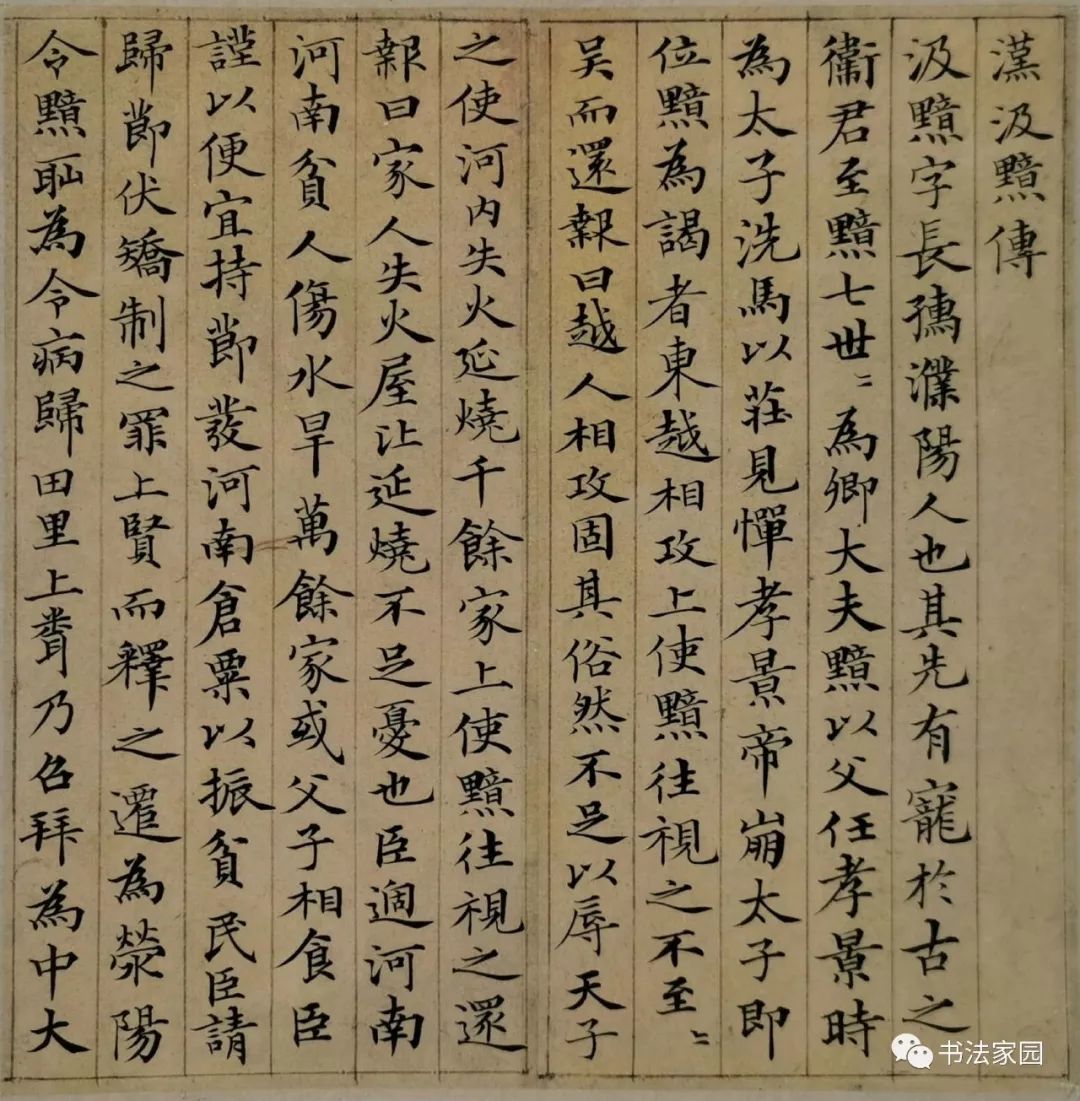 漢汲黯傳
汲黯字長孺濮陽人也其先有寵於古之
衞君至黯七世〻為卿大夫黯以父任孝景時
為太子洗馬以莊見憚孝景帝崩太子即
位黯為謁者東越相攻上使黯往視之不至〻
吴而還報曰越人相攻固其俗然不足以辱天子
之使河内失火延燒千餘家上使黯往視之還
報曰家人失火屋比延燒不足憂也臣過河南
河南貧人傷水旱萬餘家或父子相食臣
謹以便宜持節發河南倉粟以振貧民臣請
歸節伏矯制之罪上賢而釋之遷為滎陽
令黯恥為令病歸田里上聞乃召拜為中大
书法家园